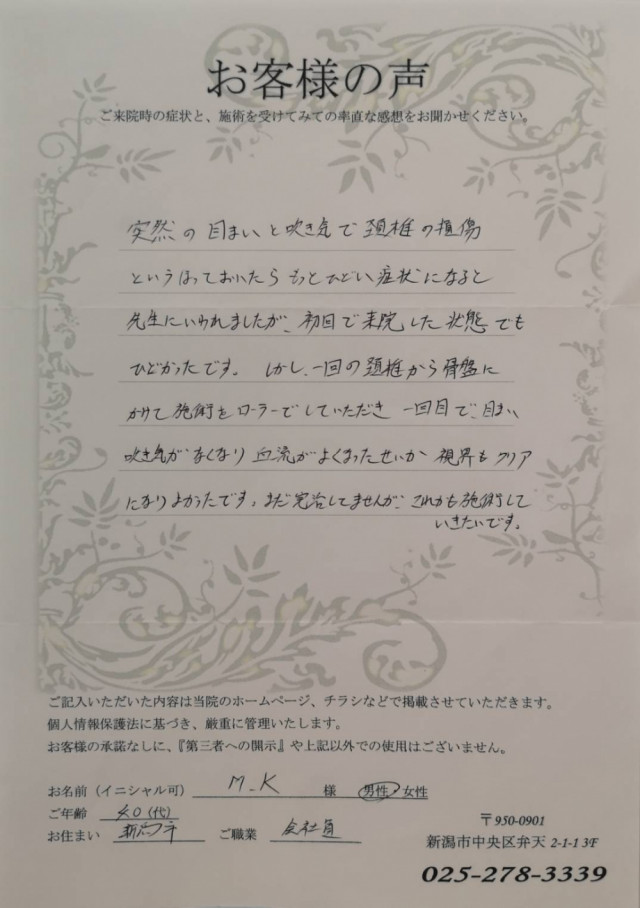 お客様の声
ご来院時の症状と、施術を受けてみての率直な感想をお聞かせください。
突然の目まいと吹き気で頚椎の損傷
というほっておいたらもっとひどい症状になると
先生にいわれましたが、初回で来院した状態でも
ひどかったです。しかし、一回の頚椎から骨盤に
かけて施術をローラーでしていただき 一回目で、目まい
吹き気がなくなり 血流がよくなったせいか 視界もクリア
になりよかったです。まだ完治してませんが、これからも施術して
いきたいです。
ご記入いただいた内容は当院のホームページ、チラシなどで掲載させていただきます。
個人情報保護法に基づき、厳重に管理いたします。
お客様の承諾なしに、『第三者への開示』や上記以外での使用はございません。
お名前（イニシャル可） M.K 様 男性・女性
ご年齢 40(代)
お住まい 新潟市 ご職業 会社員
〒950-0901
新潟市中央区弁天 2-1-1 3F
025-278-3339